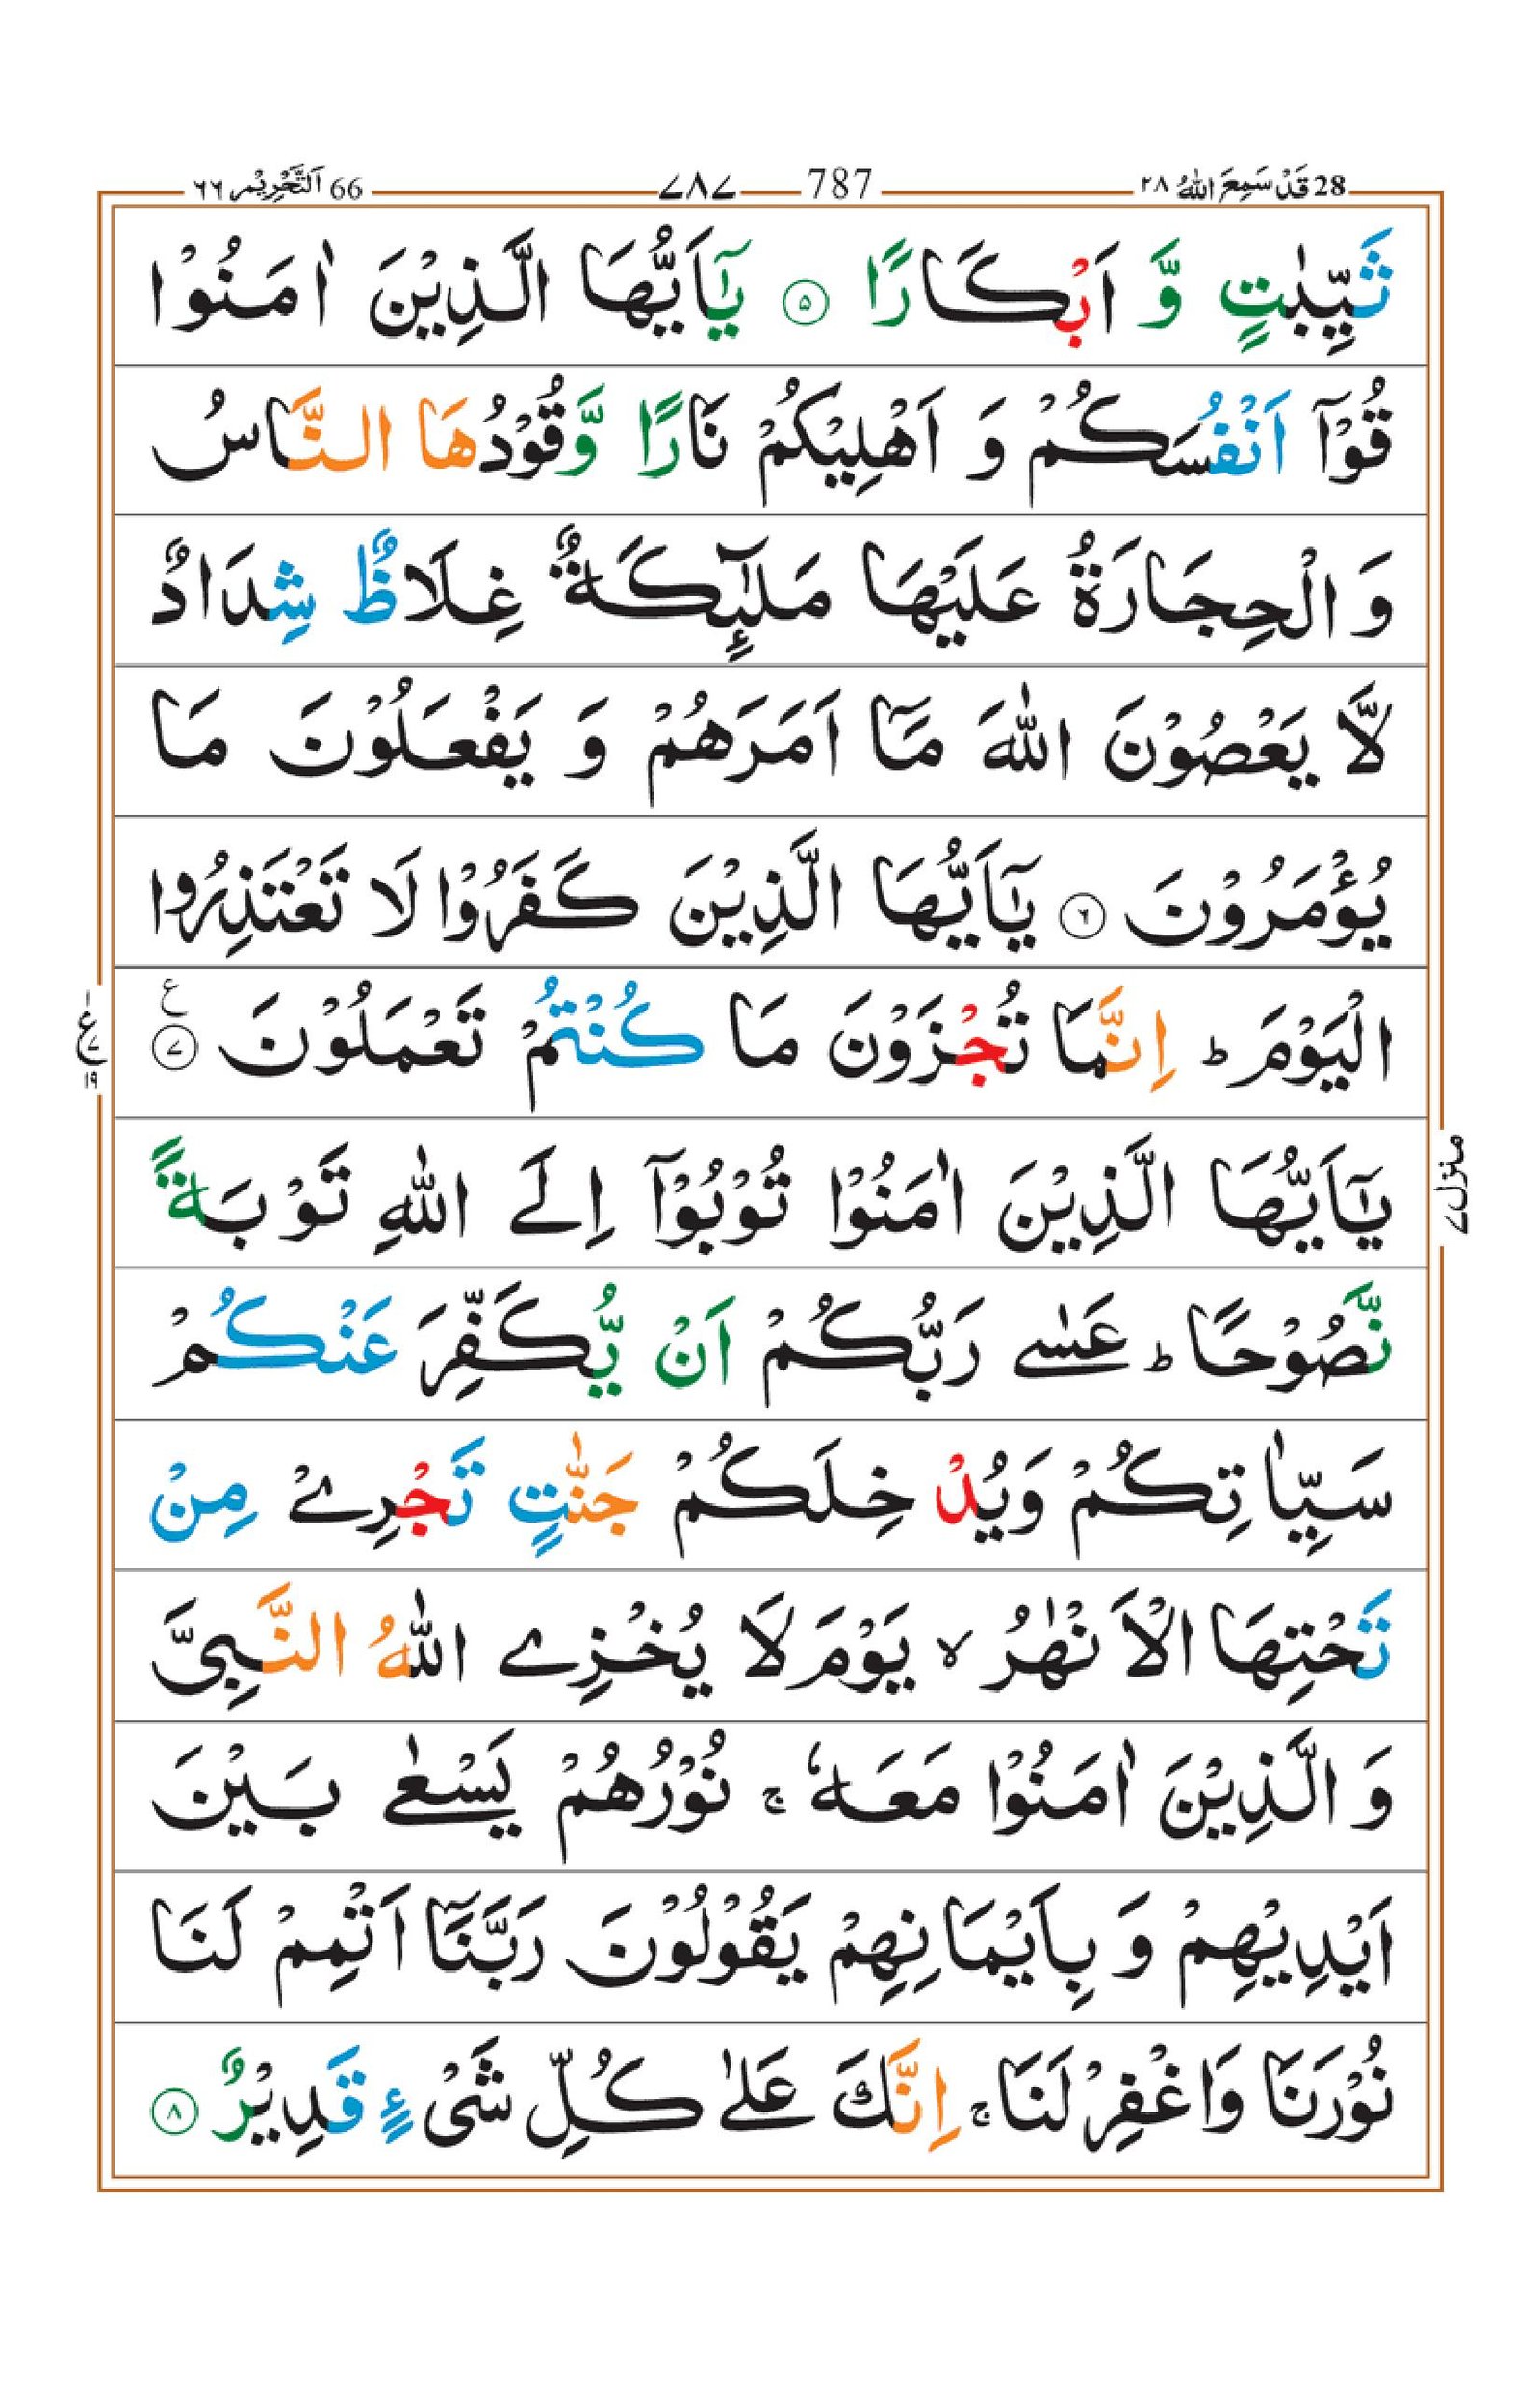 28 قَدْ سَمِعَ اللّٰهُ ٢٨
787 ٧٨٧
66 اَلتَّحْرِيْم ٦٦
ثَيِّبٰتٍ وَّ اَبْكَارًا ۝۵ يٰۤاَيُّهَا الَّذِيْنَ اٰمَنُوْا
قُوْۤا اَنْفُسَكُمْ وَ اَهْلِيْكُمْ نَارًا وَّقُوْدُهَا النَّاسُ
وَ الْحِجَارَةُ عَلَيْهَا مَلٰٓئِكَةٌ غِلَاظٌ شِدَادٌ
لَّا يَعْصُوْنَ اللّٰهَ مَاۤ اَمَرَهُمْ وَ يَفْعَلُوْنَ مَا
يُؤْمَرُوْنَ ۝۶ يٰۤاَيُّهَا الَّذِيْنَ كَفَرُوْا لَا تَعْتَذِرُوا
الْيَوْمَ ؕ اِنَّمَا تُجْزَوْنَ مَا كُنْتُمْ تَعْمَلُوْنَ ۝۷ ع
ع ۷ ۱۹
يٰۤاَيُّهَا الَّذِيْنَ اٰمَنُوْا تُوْبُوْۤا اِلَى اللّٰهِ تَوْبَةً
منزل ۷
نَّصُوْحًا ؕ عَسٰى رَبُّكُمْ اَنْ يُّكَفِّرَ عَنْكُمْ
سَيِّاٰتِكُمْ وَيُدْخِلَكُمْ جَنّٰتٍ تَجْرِيْ مِنْ
تَحْتِهَا الْاَنْهٰرُ ۙ يَوْمَ لَا يُخْزِي اللّٰهُ النَّبِيَّ
وَ الَّذِيْنَ اٰمَنُوْا مَعَهٗ ۚ نُوْرُهُمْ يَسْعٰى بَيْنَ
اَيْدِيْهِمْ وَ بِاَيْمَانِهِمْ يَقُوْلُوْنَ رَبَّنَاۤ اَتْمِمْ لَنَا
نُوْرَنَا وَاغْفِرْ لَنَا ۚ اِنَّكَ عَلٰى كُلِّ شَيْءٍ قَدِيْرٌ ۝۸